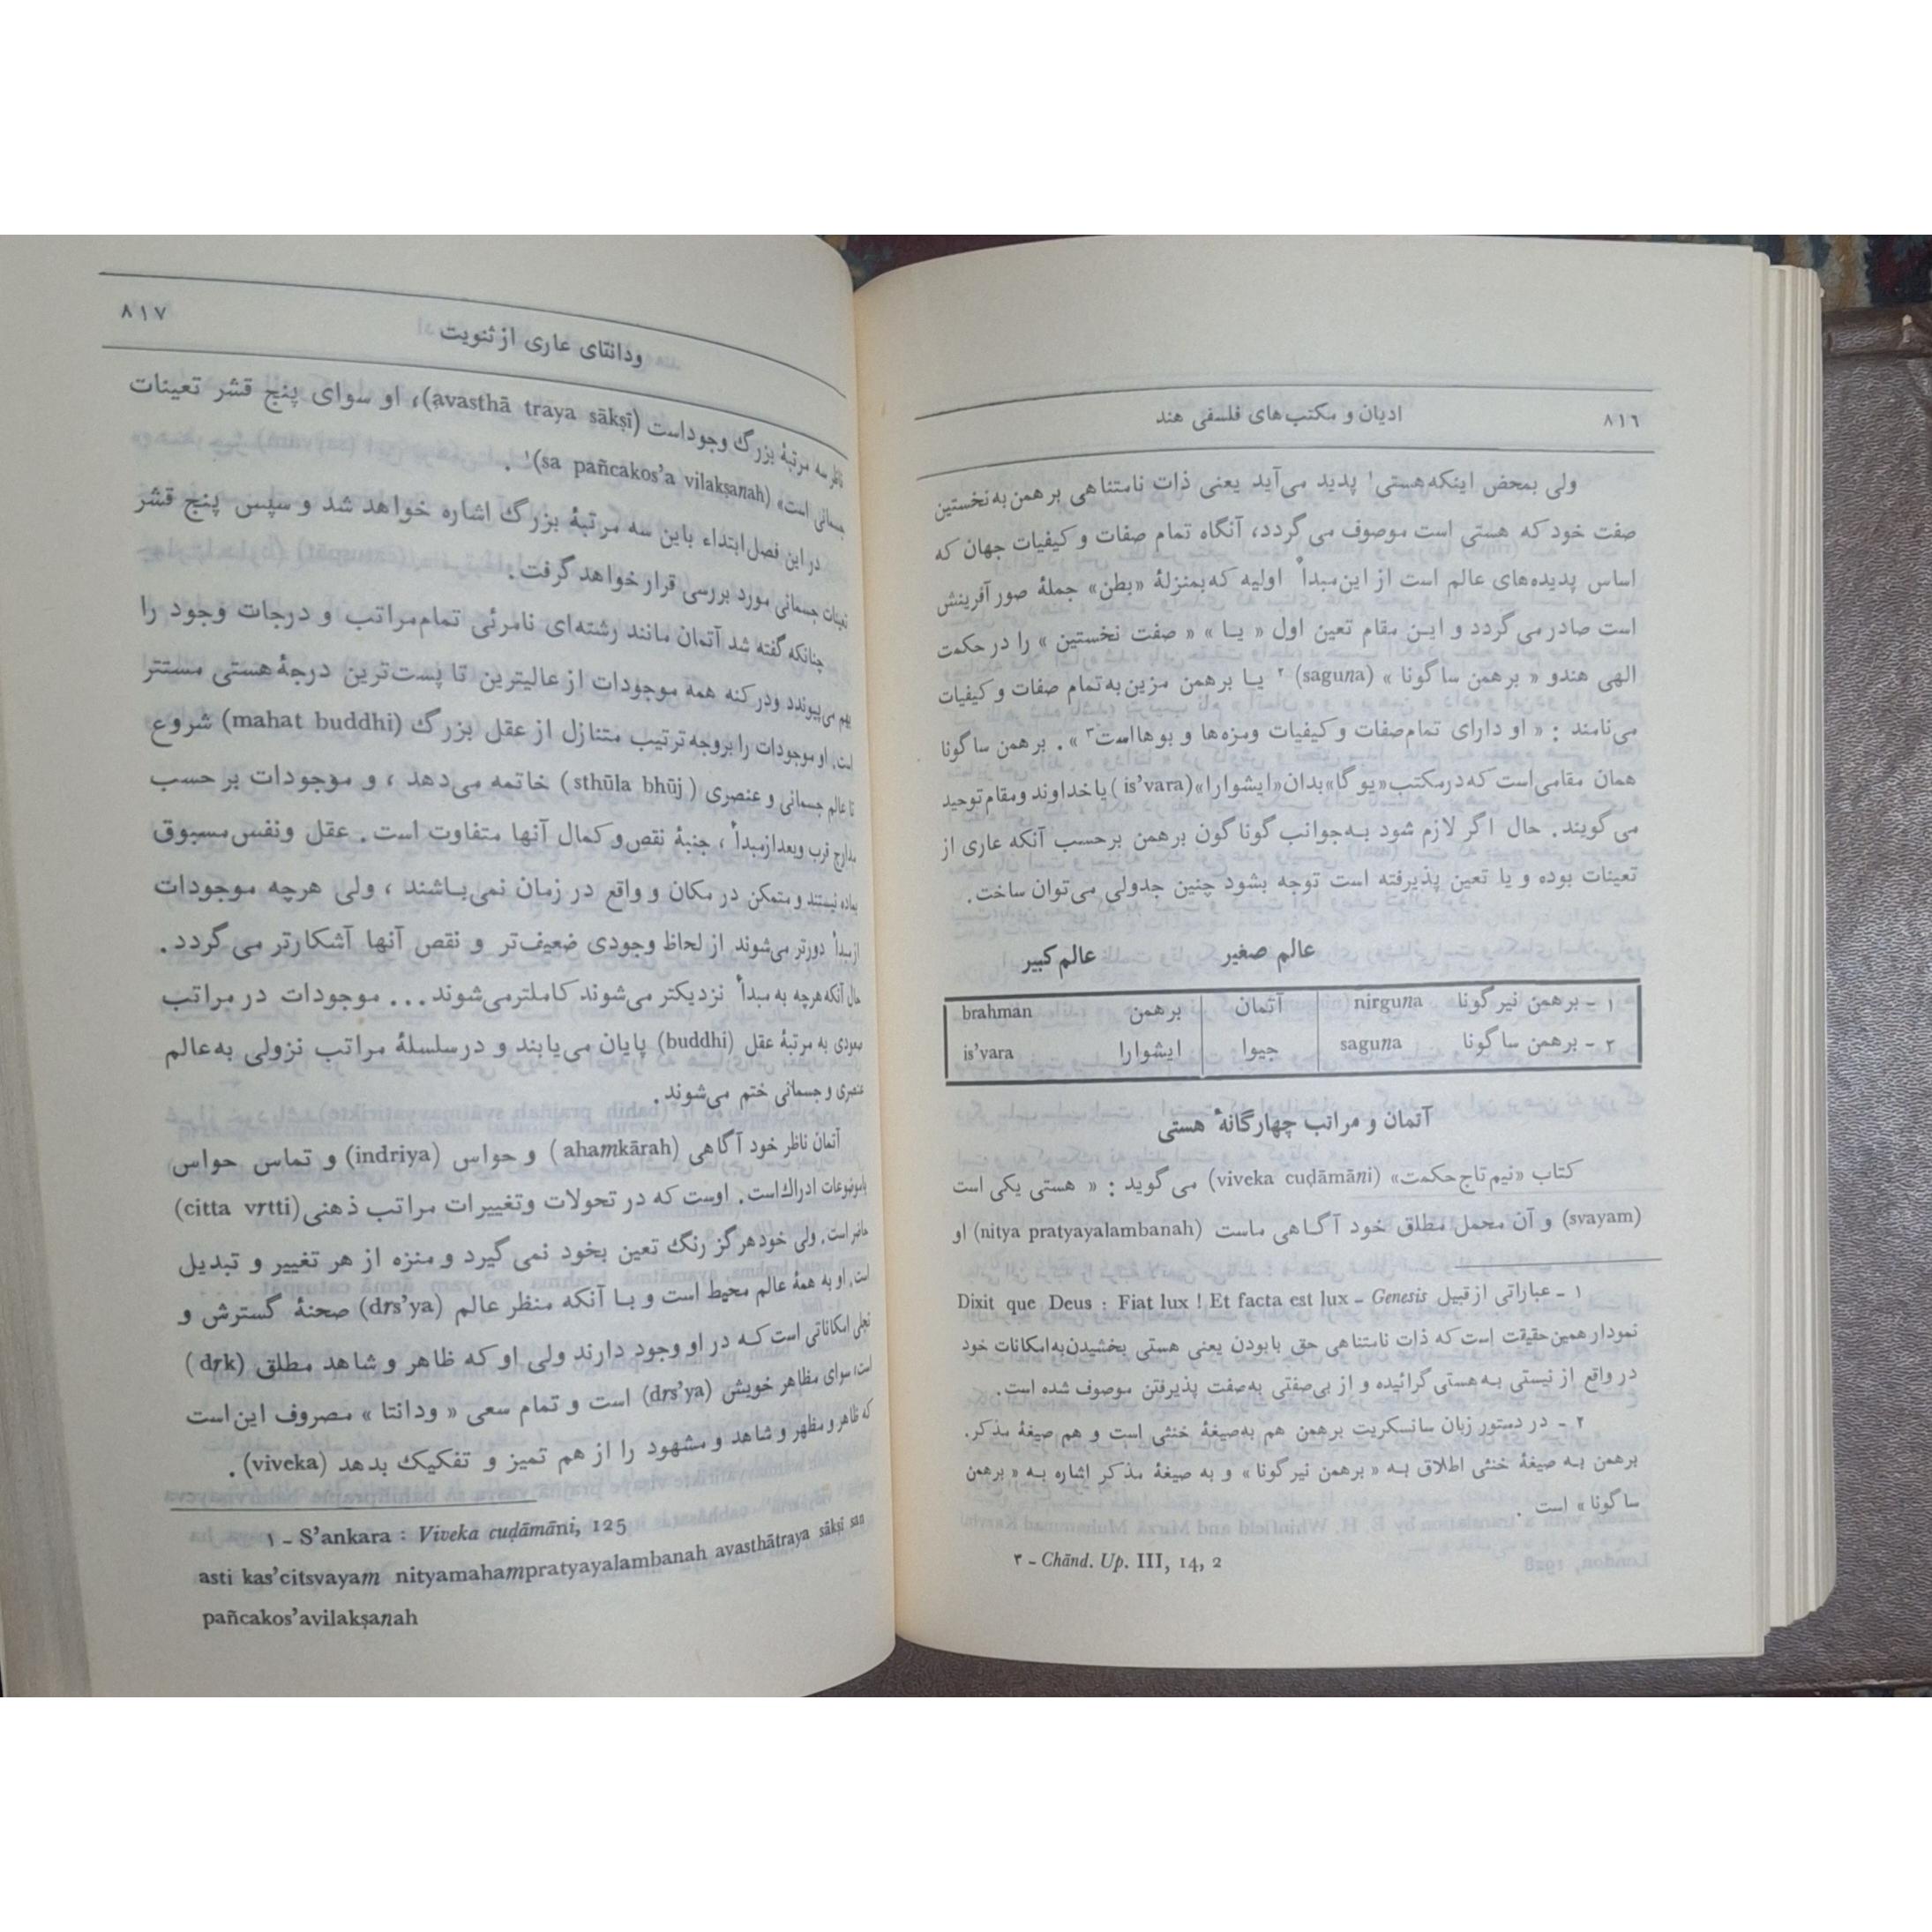 ۸۱٦ ادیان و مکتب‌های فلسفی هند
ولی بمحض اینکه هستی¹ پدید می‌آید یعنی ذات نامتناهی برهمن به نخستین
صفت خود که هستی است موصوف می‌گردد، آنگاه تمام صفات و کیفیات جهان که
اساس پدیده‌های عالم است از این مبدأ اولیه که بمنزلهٔ «بطن» جملهٔ صور آفرینش
است صادر می‌گردد و این مقام تعین اول « یا » « صفت نخستین » را در حکمت
الهی هندو « برهمن ساگونا » (saguna) ۲ یا برهمن مزین به تمام صفات و کیفیات
می‌نامند : « او دارای تمام صفات و کیفیات ومزه‌ها و بوهااست۳ ». برهمن ساگونا
همان مقامی است که در مکتب «یوگا» بدان «ایشوارا» (is’vara) یا خداوند و مقام توحید
می‌گویند. حال اگر لازم شود به‌جوانب گوناگون برهمن برحسب آنکه عاری از
تعینات بوده و یا تعین پذیرفته است توجه بشود چنین جدولی می‌توان ساخت.
عالم صغیر عالم کبیر
۱ - برهمن نیرگونا nirguna آتمان برهمن brahman
۲ - برهمن ساگونا saguna جیوا ایشوارا is’vara
آتمان و مراتب چهارگانهٔ هستی
کتاب «نیم تاج حکمت» (viveka cuḍāmāni) می‌گوید : « هستی یکی است
(svayam) و آن محمل مطلق خود آگاهی ماست (nitya pratyayalambanah) او
۱ - عباراتی از قبیل Dixit que Deus : Fiat lux ! Et facta est lux – Genesis
نمودار همین حقیقت است که ذات نامتناهی حق بابودن یعنی هستی بخشیدن به‌امکانات خود
در واقع از نیستی به هستی گرائیده و از بی‌صفتی به‌صفت پذیرفتن موصوف شده است.
۲ - در دستور زبان سانسکریت برهمن هم به‌صیغهٔ خنثی است و هم صیغهٔ مذکر.
برهمن به صیغهٔ خنثی اطلاق به « برهمن نیرگونا » و به صیغهٔ مذکر اشاره به « برهمن
ساگونا » است .
۳ - Chānd. Up. III, 14, 2
ودانتای عاری از ثنویت ۸۱۷
ناظر سه مرتبهٔ بزرگ وجود است (avasthā traya sākṣī)، او سوای پنج قشر تعینات
جسمانی است» (sa pañcakos’a vilakṣanah)¹ .
در این فصل ابتداء باین سه مرتبهٔ بزرگ اشاره خواهد شد و سپس پنج قشر
تعینات جسمانی مورد بررسی قرار خواهد گرفت.
چنانکه گفته شد آتمان مانند رشته‌ای نامرئی تمام مراتب و درجات وجود را
بهم می‌پیوندد ودر کنه همه موجودات از عالیترین تا پست‌ترین درجهٔ هستی مستتر
است. او موجودات را بروجه ترتیب متنازل از عقل بزرگ (mahat buddhi) شروع
تا عالم جسمانی و عنصری (sthūla bhūj) خاتمه می‌دهد ، و موجودات برحسب
مدارج قرب وبعد از مبدأ ، جنبهٔ نقص و کمال آنها متفاوت است . عقل ونفس مسبوق
بماده نیستند و متمکن در مکان و واقع در زمان نمی‌باشند ، ولی هرچه موجودات
از مبدأ دورتر می‌شوند از لحاظ وجودی ضعیف‌تر و نقص آنها آشکارتر می‌گردد .
حال آنکه هرچه به مبدأ نزدیکتر می‌شوند کاملترمی‌شوند... موجودات در مراتب
صعودی به مرتبهٔ عقل (buddhi) پایان می‌یابند و در سلسلهٔ مراتب نزولی به‌عالم
عنصری و جسمانی ختم می‌شوند.
آتمان ناظر خود آگاهی (ahamkārah) و حواس (indriya) و تماس حواس
باموضوعات ادراک است. اوست که در تحولات وتغییرات مراتب ذهنی (citta vrtti)
حاضر است. ولی خود هرگز رنگ تعین بخود نمی‌گیرد و منزه از هر تغییر و تبدیل
است. او به همهٔ عالم محیط است و با آنکه منظر عالم (drs’ya) صحنهٔ گسترش و
تجلی امکاناتی است که در او وجود دارند ولی او که ظاهر و شاهد مطلق (drk)
است، سوای مظاهر خویش (drs’ya) است و تمام سعی « ودانتا » مصروف این است
که ظاهر و مظهر و شاهد و مشهود را از هم تمیز و تفکیک بدهد (viveka).
۱ - S’ankara : Viveka cuḍāmāni, 125
asti kas’citsvayam nityamahampratyayalambanah avasthātraya sākṣi san
pañcakos’avilakṣanah